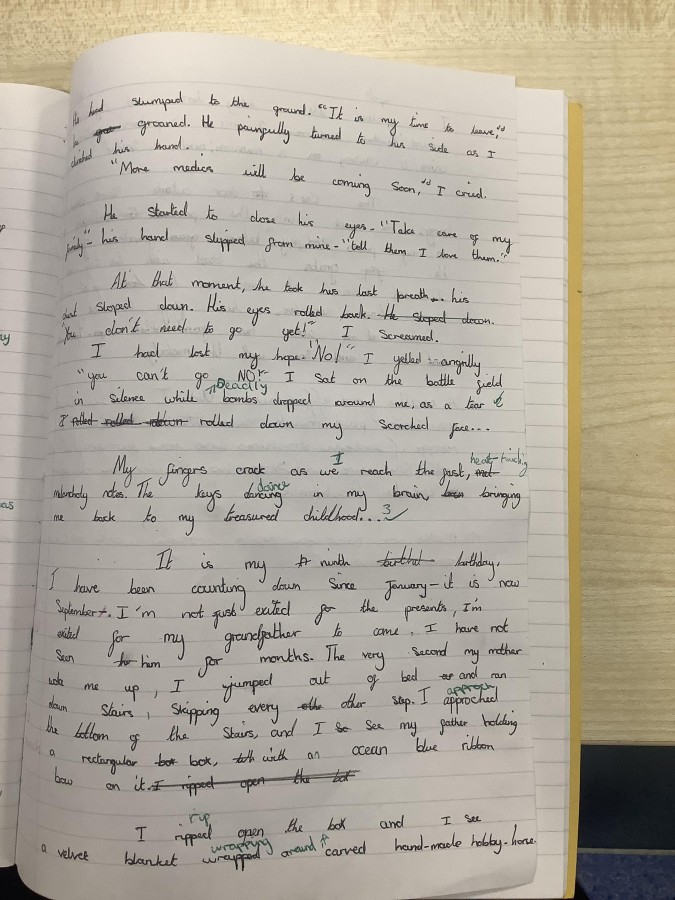 He had slumped to the ground. "It is my time to leave,"
he groaned. He painfully turned to his side as I
clutched his hand.
"More medics will be coming soon," I cried.
He started to close his eyes - "Take care of my
family" - his hand slipped from mine - "tell them I love them."
At that moment, he took his last breath... his
sloped down. His eyes rolled back. He sloped down.
"You don't need to go yet!" I screamed.
I had lost my hope. "No!" I yelled angrilly
"you can't go NO!" I sat on the battle field
in silence while Deadly bombs dropped around me, as a tear
I rolled rolled down rolled down my scorched face...
My fingers crack as we I reach the fast, heart-touching
melancholy notes. The keys dancing dance in my brain, bringing
me back to my treasured childhood... 3
It is my ninth birthday.
I have been counting down since January - it is now
September. I'm not just exited for the presents, I'm
exited for my grandfather to come. I have not
seen him for months. The very second my mother
woke me up, I jumped out of bed and ran
down stairs, skipping every other step. I approched approach
the bottom of the stairs, and I see my father holding
a rectangular box, with an ocean blue ribbon
bow on it. I ripped open the box
I ripped rip open the box and I see
a velvet blanket wrapped wrapping around carved hand-made hobby-horse.
as